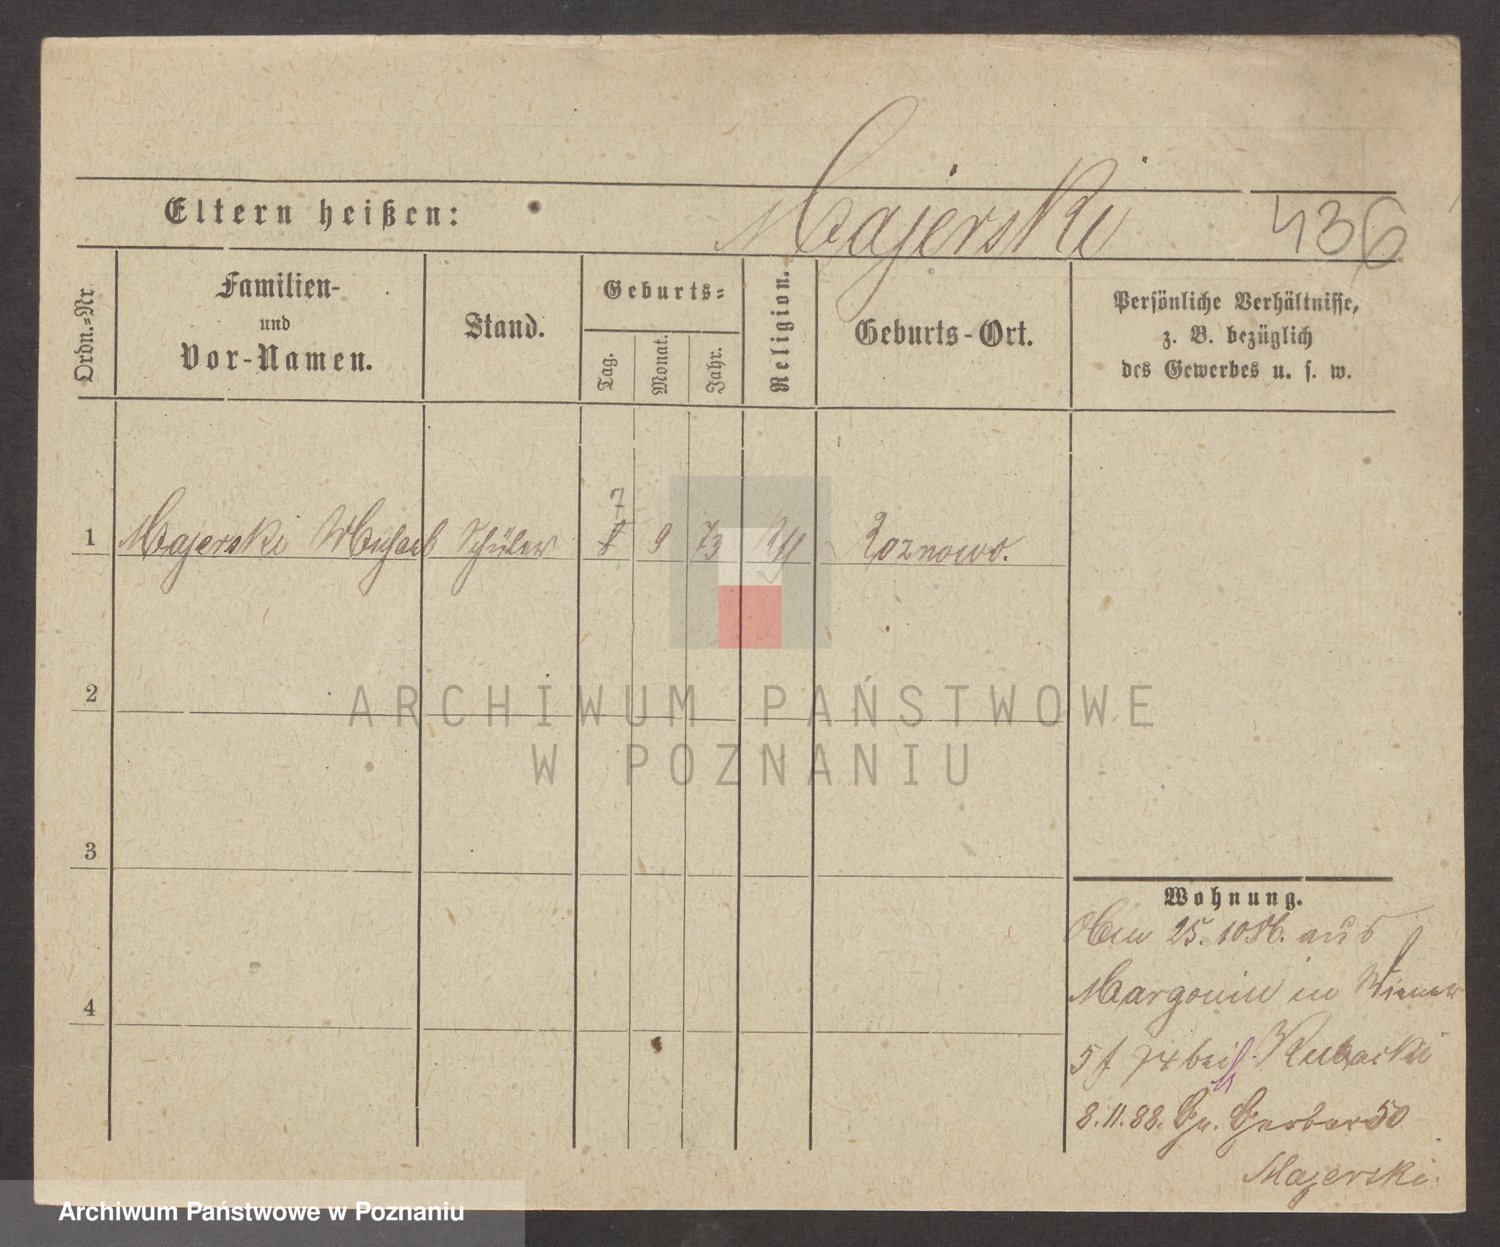 Majerski
436
Eltern heißen:
Ordn.-Nr.
Familien-
und
Vor-Namen.
Stand.
Geburts-
Tag.
Monat.
Jahr.
Religion.
Geburts-Ort.
Persönliche Verhältnisse,
z. B. bezüglich
des Gewerbes u. s. w.
1 Majerski Michael Schüler 7 9 73 Roznowo.
2
3
4
Wohnung.
25. 10 86. aus
Margonin in Wiener
5 f bei Kubacki
8.11.88. Gr. Gerber 50
Majerski.
ARCHIWUM PAŃSTWOWE
W POZNANIU
Archiwum Państwowe w Poznaniu